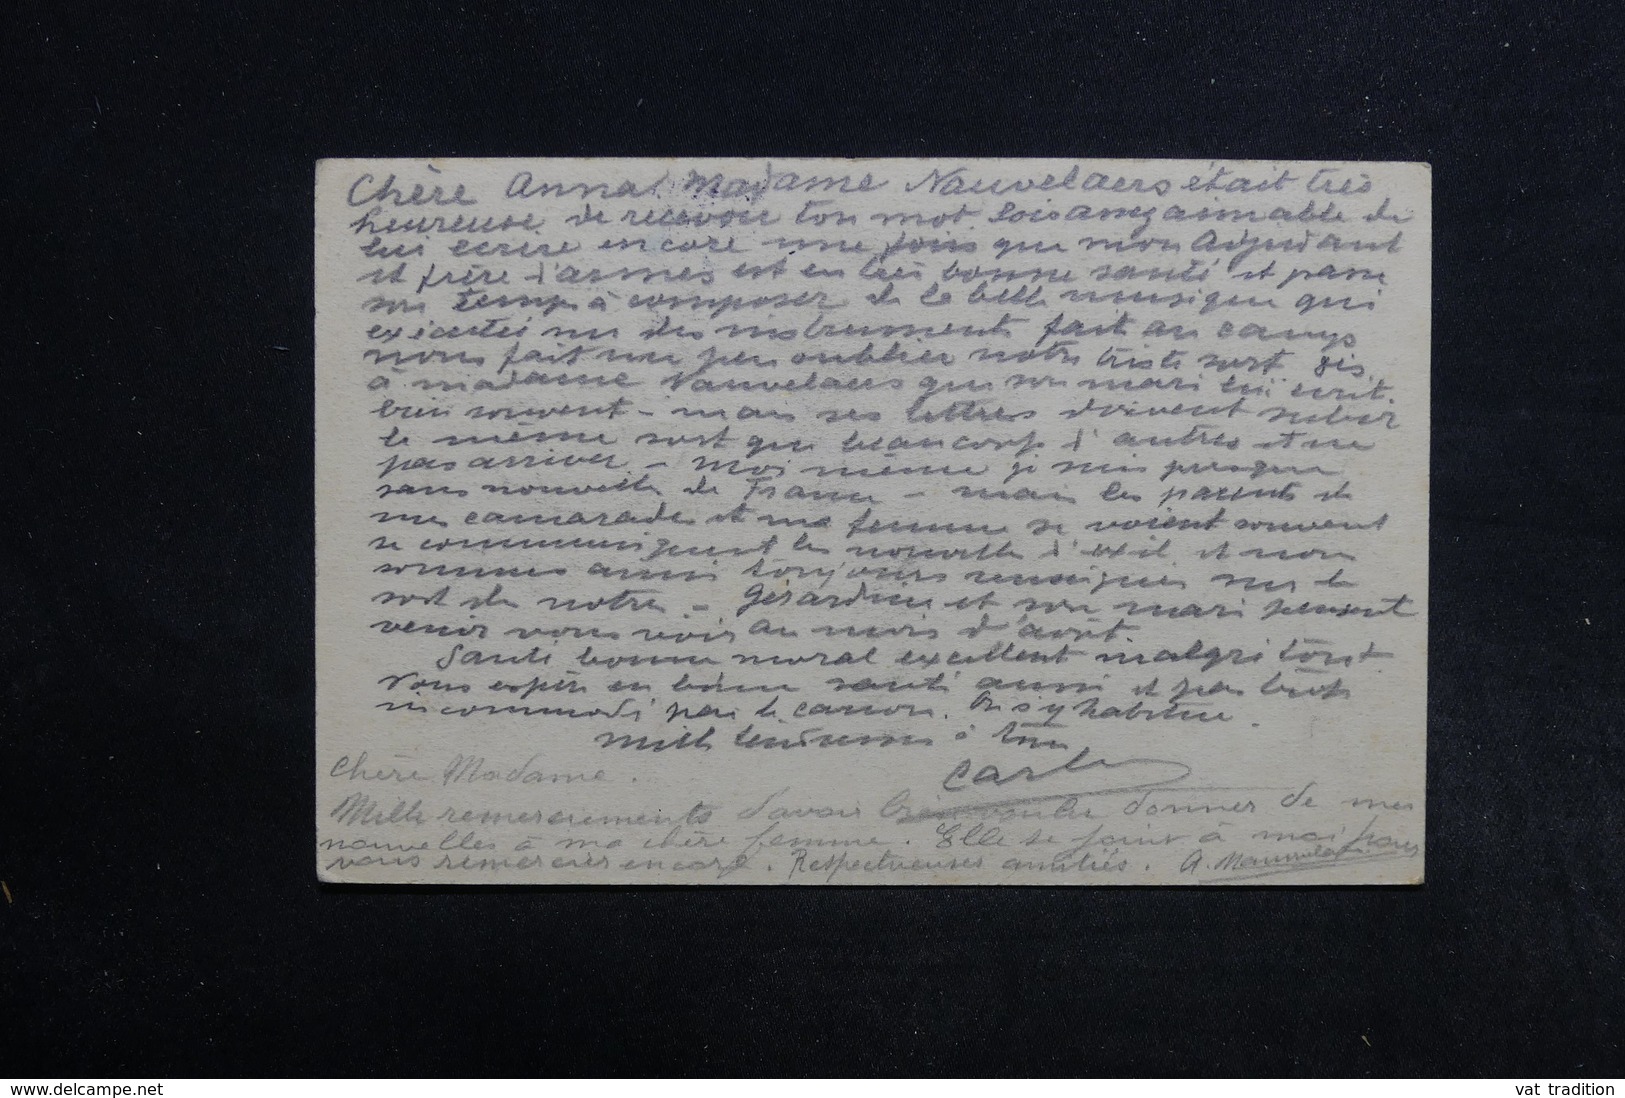 Chère Anna! Madame Nauvelaers était très
heureuse de recevoir ton mot. Sois assez aimable de
lui écrire encore une fois que mon Adjudant
et frère d'armes est en très bonne santé et passe
son temps à composer de la belle musique qui
exécutée sur des instruments fait au camps
nous fait un peu oublier notre triste sort. Dis
à madame Nauvelaers que son mari lui écrit
bien souvent - mais ses lettres doivent subir
le même sort que beaucoup d'autres et ne
pas arriver. - Moi même je suis presque
sans nouvelles de France - mais les parents de
mes camarades et ma femme se voient souvent
se communiquent les nouvelles d'exil et nous
sommes ainsi toujours renseignés sur le
sort des notres - Gérardine et son mari pensent
venir vous voir au mois d'août.
Santé bonne moral excellent malgré tout.
Vous espère en bonne santé aussi et pas trop
incommodé par le canon. On s'y habitue.
Mille tendresses à tous
Carlo
Chère Madame.
Mille remerciements d'avoir bien voulu donner de mes
nouvelles à ma chère femme. Elle se joint à moi pour
vous remercier encore. Respectueuses amitiés. A. Nauvelaers
www.delcampe.net
vat tradition